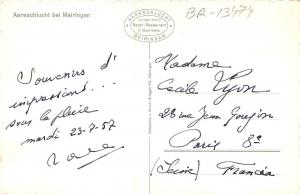 Aareschlucht bei Meiringen
AARESCHLUCHT
MEIRINGEN
BR-13474
Souvenirs d'
impressions...
sous la pluie
mardi 23-7-57
Madame
Cécile Lyon
28 rue Jean Goujon
Paris 8e
(Seine) Francia